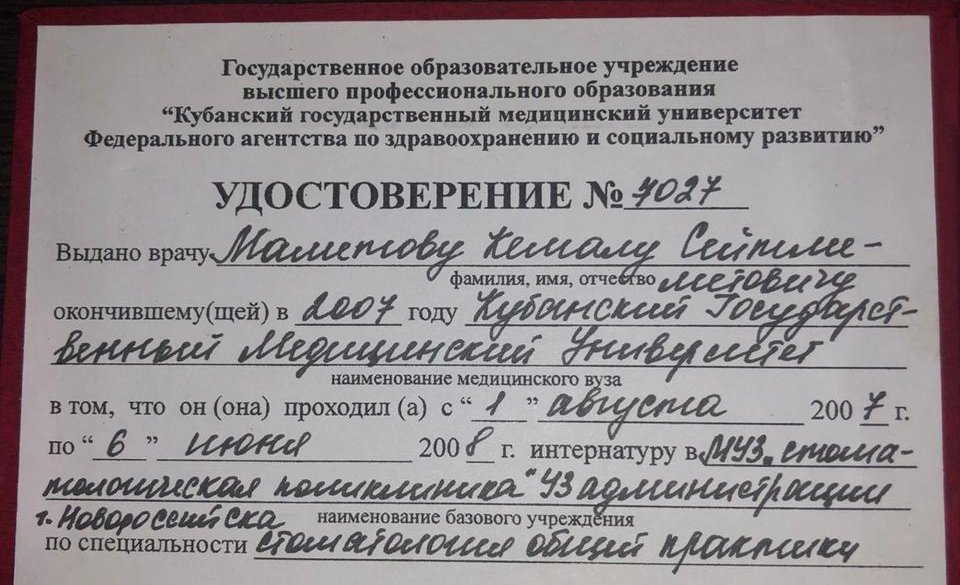 Государственное образовательное учреждение
высшего профессионального образования
“Кубанский государственный медицинский университет
Федерального агентства по здравоохранению и социальному развитию”
УДОСТОВЕРЕНИЕ № 7027
Выдано врачу Маметову Кемалу Сейтме-
фамилия, имя, отчество метовичу
окончившему(щей) в 2007 году Кубанский Государст-
венный Медицинский Университет
наименование медицинского вуза
в том, что он (она) проходил (а) с “ 1 ” августа 2007 г.
по “ 6 ” июня 2008 г. интернатуру в МУЗ „стома-
тологическая поликлиника“ УЗ администрации
г. Новороссийска наименование базового учреждения
по специальности стоматология общей практики